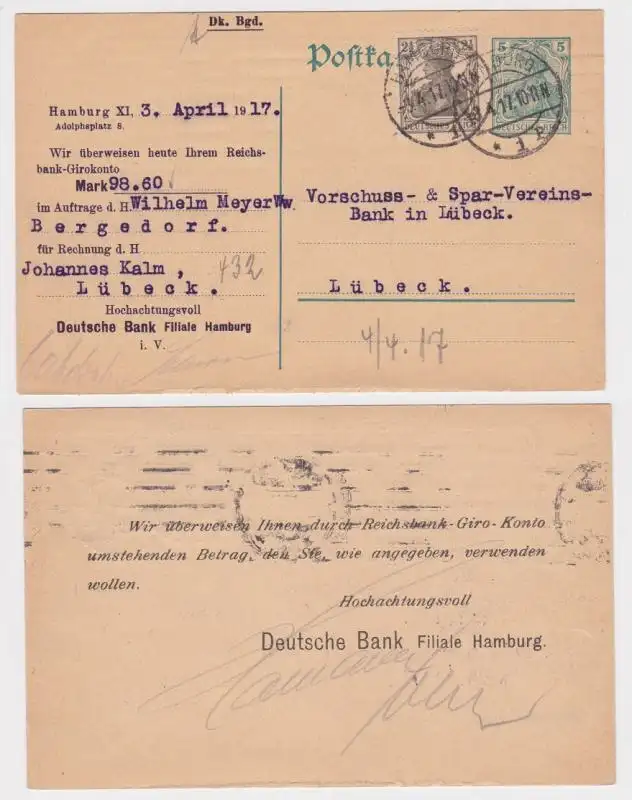 Dk. Bgd.
Postka
2½ 2½
5 5
DEUTSCHES REICH
DEUTSCHES REICH
Hamburg XI, 3. April 1917.
Adolphsplatz 8.
Wir überweisen heute Ihrem Reichs-
bank-Girokonto
Mark 98.60
im Auftrage d. H. Wilhelm Meyer Ww.
Bergedorf.
für Rechnung d. H
Johannes Kalm,
Lübeck.
432
Hochachtungsvoll
Deutsche Bank Filiale Hamburg
i. V.
Vorschuss- & Spar-Vereins-
Bank in Lübeck.
Lübeck.
4/4. 17
Wir überweisen Ihnen durch Reichsbank-Giro-Konto
umstehenden Betrag, den Sie, wie angegeben, verwenden
wollen.
Hochachtungsvoll
Deutsche Bank Filiale Hamburg.